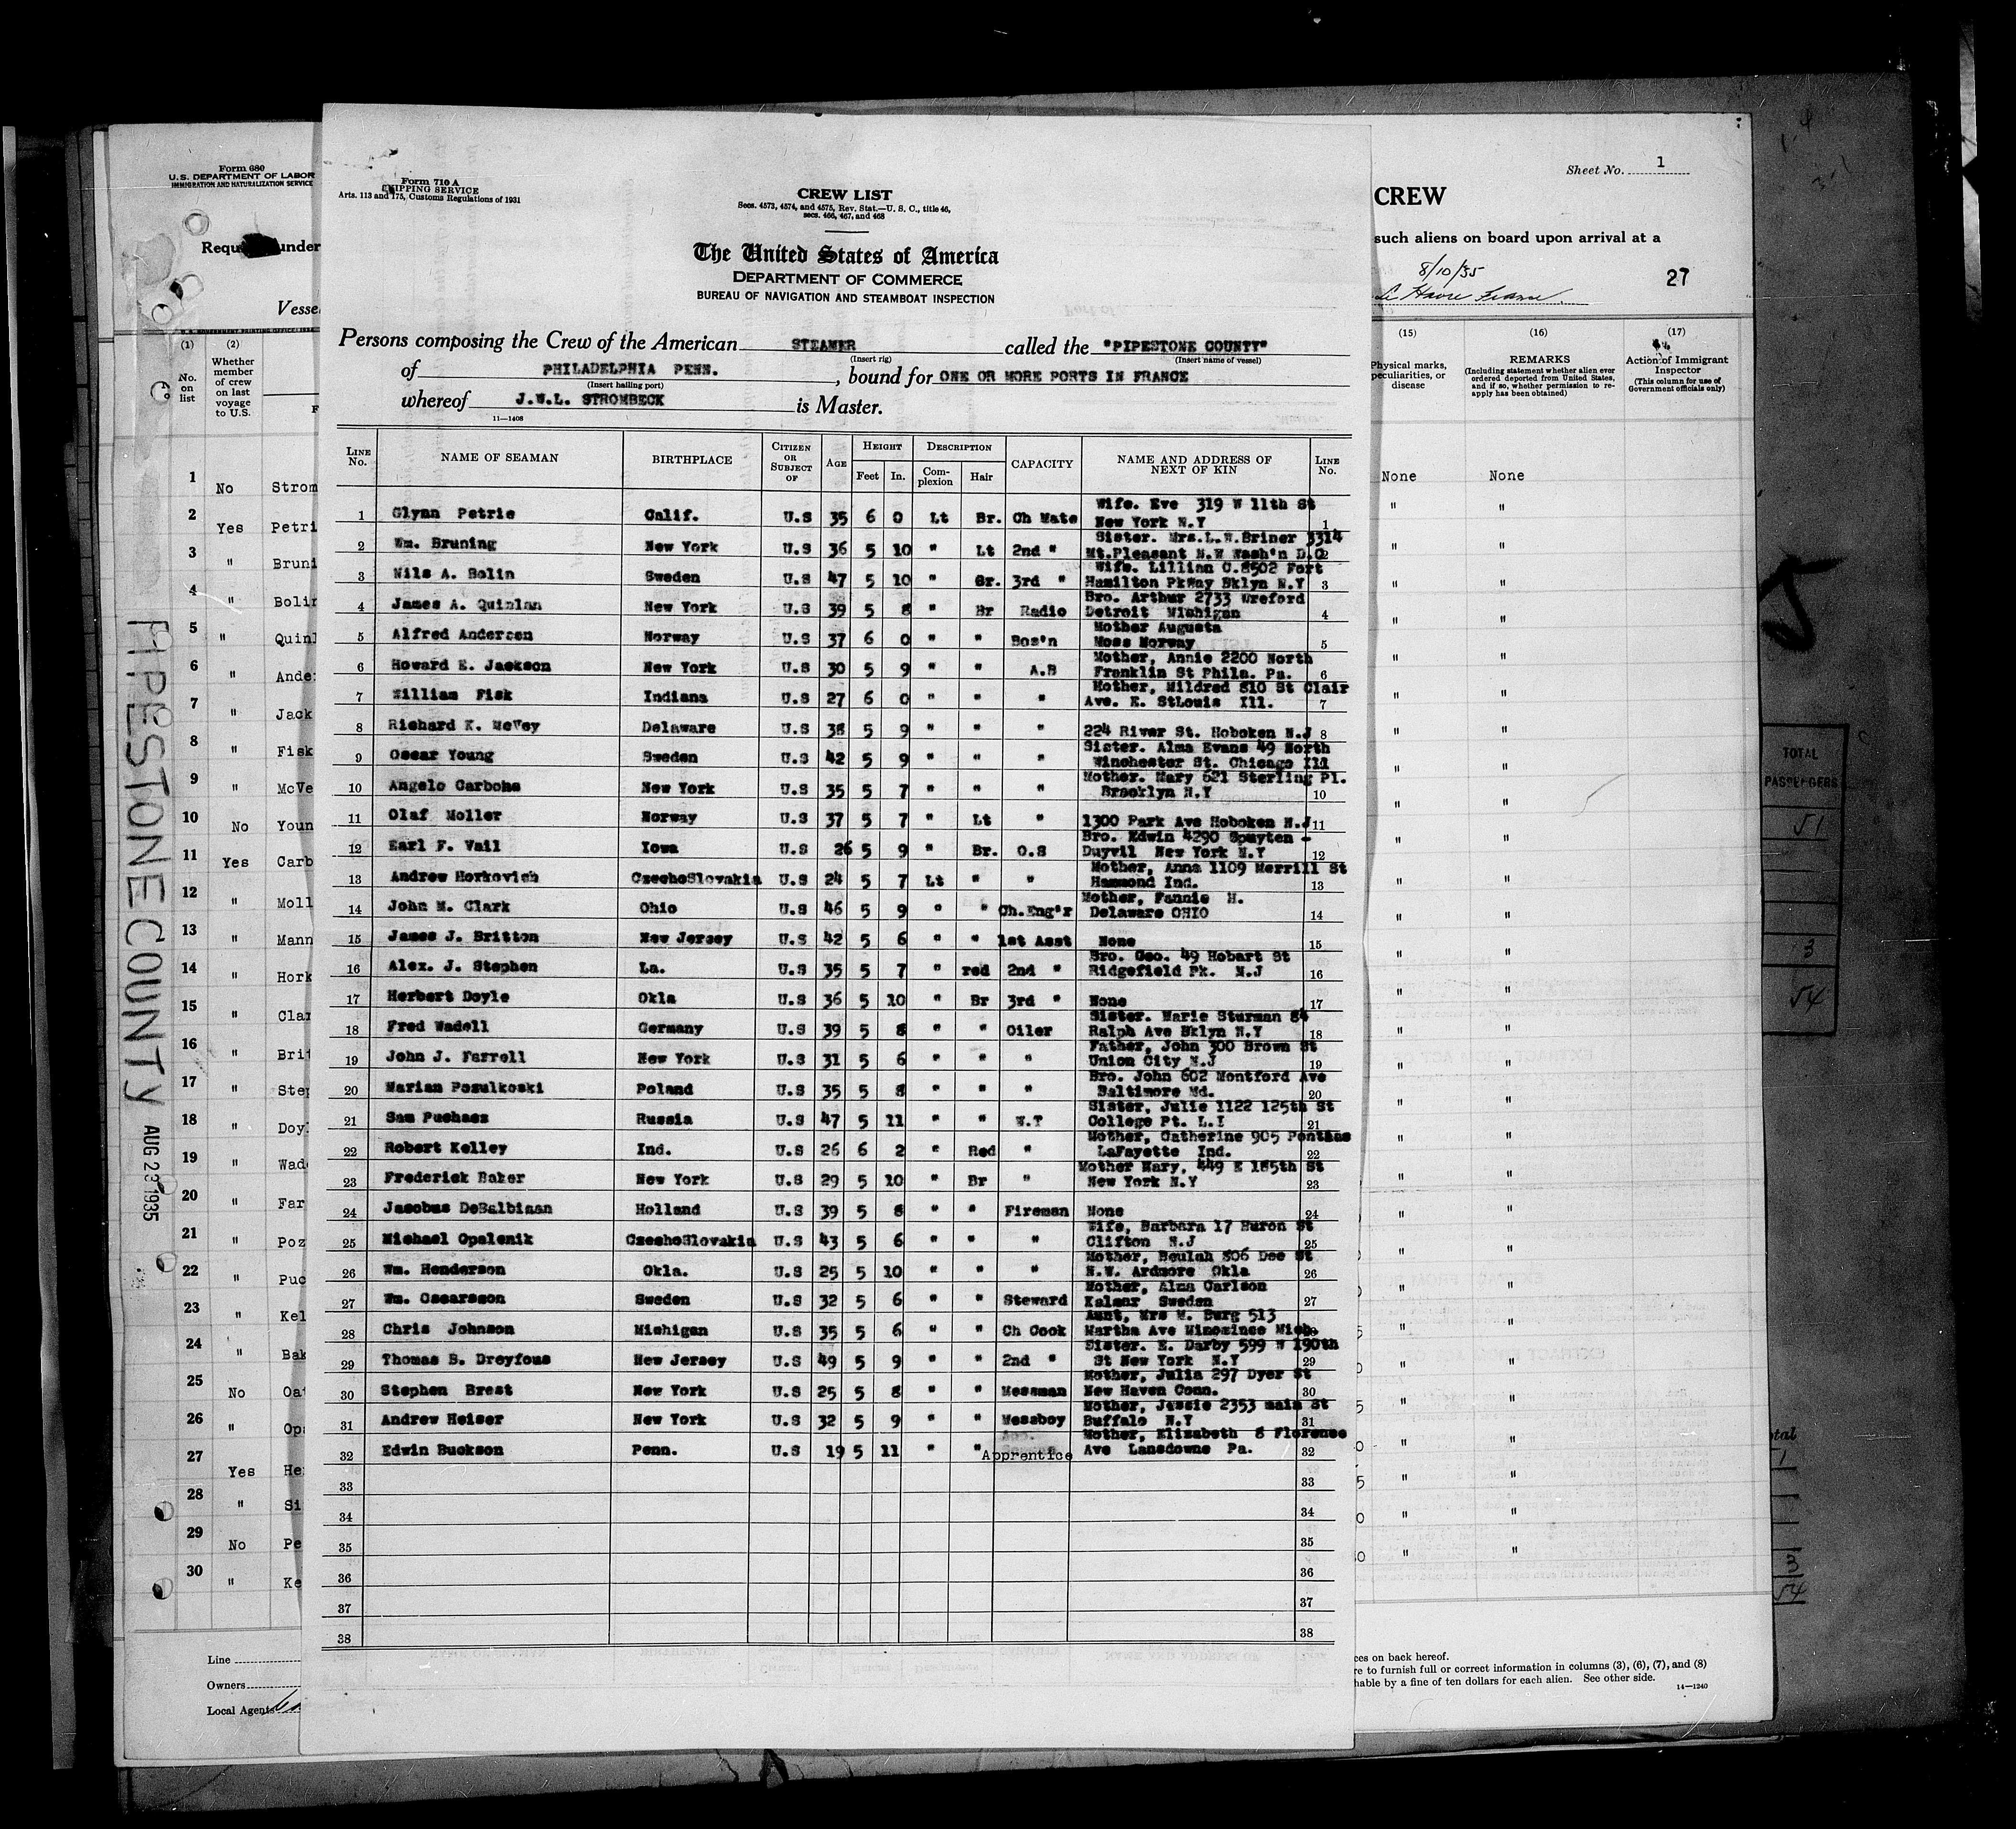 Form 680
U.S. DEPARTMENT OF LABOR
IMMIGRATION AND NATURALIZATION SERVICE
under
Vesse
(1) (2)
No. on list
Whether member of crew on last voyage to U.S.
1 No Strom
2 Yes Petri
3 " Bruni
4 " Bolin
5 " Quinl
6 " Ande
7 " Jack
8 " Fisk
9 " McVe
10 No Youn
11 Yes Carb
12 " Moll
13 " Mann
14 " Hork
15 " Clar
16 " Brit
17 " Step
18 " Doyl
19 " Wade
20 " Far
21 " Poz
22 " Puc
23 " Kel
24 " Bak
25 No Oa
26 " Opa
27 Yes He
28 " Si
29 No Pe
30 " Ke
Line
Owners
Local Agents
PIPESTONE COUNTY AUG 23 1935
Form 710 A
SHIPPING SERVICE
Arts. 113 and 175, Customs Regulations of 1931
CREW LIST
Secs. 4573, 4574, and 4575, Rev. Stat.—U. S. C., title 46,
secs. 466, 467, and 468
The United States of America
DEPARTMENT OF COMMERCE
BUREAU OF NAVIGATION AND STEAMBOAT INSPECTION
Persons composing the Crew of the American STEAMER called the "PIPESTONE COUNTY"
(Insert rig) (Insert name of vessel)
of PHILADELPHIA PENN. , bound for ONE OR MORE PORTS IN FRANCE
(Insert hailing port)
whereof J.W.L. STROMBECK is Master.
11—1408
LINE No. NAME OF SEAMAN BIRTHPLACE CITIZEN OR SUBJECT OF AGE HEIGHT Feet In. DESCRIPTION Complexion Hair CAPACITY NAME AND ADDRESS OF NEXT OF KIN LINE No.
Wife. Eve 319 W 11th St
1 Glynn Petrie Calif. U.S 35 6 0 Lt Br. Ch Mate New York N.Y 1
Sister. Mrs.L.W.Briner 3314
2 Wm. Bruning New York U.S 36 5 10 " Lt 2nd " Mt.Pleasant N.W Wash'n D.C 2
Wife. Lillian C.8502 Fort
3 Nils A. Bolin Sweden U.S 47 5 10 " Gr. 3rd " Hamilton Pkway Bklyn N.Y 3
Bro. Arthur 2733 Wreford
4 James A. Quinlan New York U.S 39 5 8 " Br Radio Detroit Michigan 4
Mother Augusta
5 Alfred Andersen Norway U.S 37 6 0 " " Bos'n Moss Norway 5
Mother, Annie 2200 North
6 Howard E. Jackson New York U.S 30 5 9 " " A.B Franklin St Phila. Pa. 6
Mother, Mildred 810 St Clair
7 William Fisk Indiana U.S 27 6 0 " " " Ave. E. StLouis Ill. 7
8 Richard K. McVey Delaware U.S 38 5 9 " " " 224 River St. Hoboken N.J 8
Sister. Alma Evans 49 North
9 Oscar Young Sweden U.S 42 5 9 " " " Winchester St. Chicago Ill
Mother. Mary 621 Sterling Pl.
10 Angelo Carbone New York U.S 35 5 7 " " " Brooklyn N.Y 10
11 Olaf Moller Norway U.S 37 5 7 " Lt " 1300 Park Ave Hoboken N.J 11
Bro. Edwin 4290 Spuyten -
12 Earl F. Vail Iowa U.S 26 5 9 " Br. O.S Duyvil New York N.Y 12
Mother, Anna 1109 Merrill St
13 Andrew Horkovich CzechoSlovakia U.S 24 5 7 Lt " " Hammond Ind. 13
Mother, Fannie H.
14 John M. Clark Ohio U.S 46 5 9 " " Ch.Eng'r Delaware OHIO 14
15 James J. Britton New Jersey U.S 42 5 6 " " 1st Asst None 15
Bro. Geo. 49 Hobart St
16 Alex. J. Stephen La. U.S 35 5 7 " red 2nd " Ridgefield Pk. N.J 16
17 Herbert Doyle Okla U.S 36 5 10 " Br 3rd " None 17
Sister. Marie Sturman 84
18 Fred Wadell Germany U.S 39 5 8 " " Oiler Ralph Ave Bklyn N.Y 18
Father, John 300 Brown St
19 John J. Farrell New York U.S 31 5 6 " " " Union City N.J 19
Bro. John 602 Montford Ave
20 Marian Pozulkoski Poland U.S 35 5 8 " " " Baltimore Md. 20
Sister, Julie 1122 125th St
21 Sam Puchacz Russia U.S 47 5 11 " " W.T College Pt. L.I 21
Mother, Catherine 905 Pontiac
22 Robert Kelley Ind. U.S 26 6 2 " Red " LaFayette Ind. 22
Mother Mary, 449 E 185th St
23 Frederick Baker New York U.S 29 5 10 " Br " New York N.Y 23
24 Jacobus DeBalbiaan Holland U.S 39 5 8 " " Fireman None 24
Wife, Barbara 17 Huron St
25 Michael Opalenik CzechoSlovakia U.S 43 5 6 " " " Clifton N.J 25
Mother, Beulah 306 Dee St
26 Wm. Henderson Okla. U.S 25 5 10 " " " N.W. Ardmore Okla 26
Mother, Alma Carlson
27 Wm. Oscarsson Sweden U.S 32 5 6 " " Steward Kalmar Sweden 27
Aunt, Mrs M. Berg 513
28 Chris Johnson Michigan U.S 35 5 6 " " Ch Cook Martha Ave Minominee Mich.
Sister. E. Darby 599 W 190th
29 Thomas B. Dreyfous New Jersey U.S 49 5 9 " " 2nd " St New York N.Y 29
Mother, Julia 297 Dyer St
30 Stephen Brest New York U.S 25 5 8 " " Messman New Haven Conn. 30
Mother, Jessie 2353 main St
31 Andrew Heiser New York U.S 32 5 9 " " Messboy Buffalo N.Y 31
Mother, Elizabeth 8 Florence
32 Edwin Buckson Penn. U.S 19 5 11 " " Apprentice Ave Lansdowne Pa. 32
33 33
34 34
35 35
36 36
37 37
38 38
Sheet No. 1
CREW
such aliens on board upon arrival at a
8/10/35
Le Havre France 27
(15) (16) (17)
Physical marks, peculiarities, or disease
REMARKS
(Including statement whether alien ever ordered deported from United States, and if so, whether permission to reapply has been obtained)
Action of Immigrant Inspector
(This column for use of Government officials only)
None None
ces on back hereof.
re to furnish full or correct information in columns (3), (6), (7), and (8)
hable by a fine of ten dollars for each alien. See other side.
14—1240
TOTAL
PASSENGERS
51
3
54
otal
1
3
54